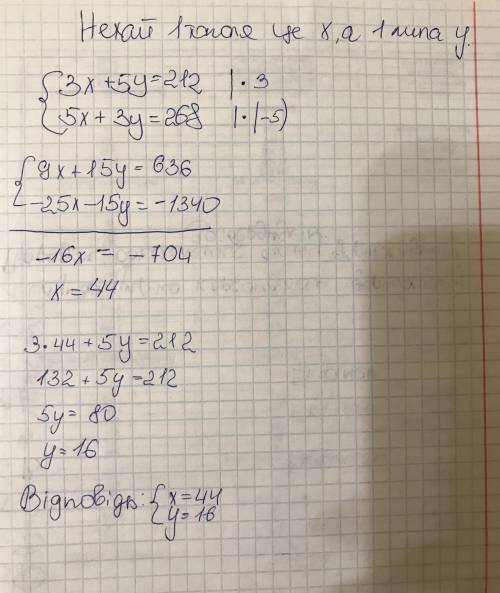 Нехай 1 тополя це x, а 1 липа y.
{3x + 5y = 212 | · 3
5x + 3y = 268 | · (-5)
{9x + 15y = 636
-25x - 15y = -1340
-16x = -704
x = 44
3 · 44 + 5y = 212
132 + 5y = 212
5y = 80
y = 16
Відповідь: {x = 44
y = 16